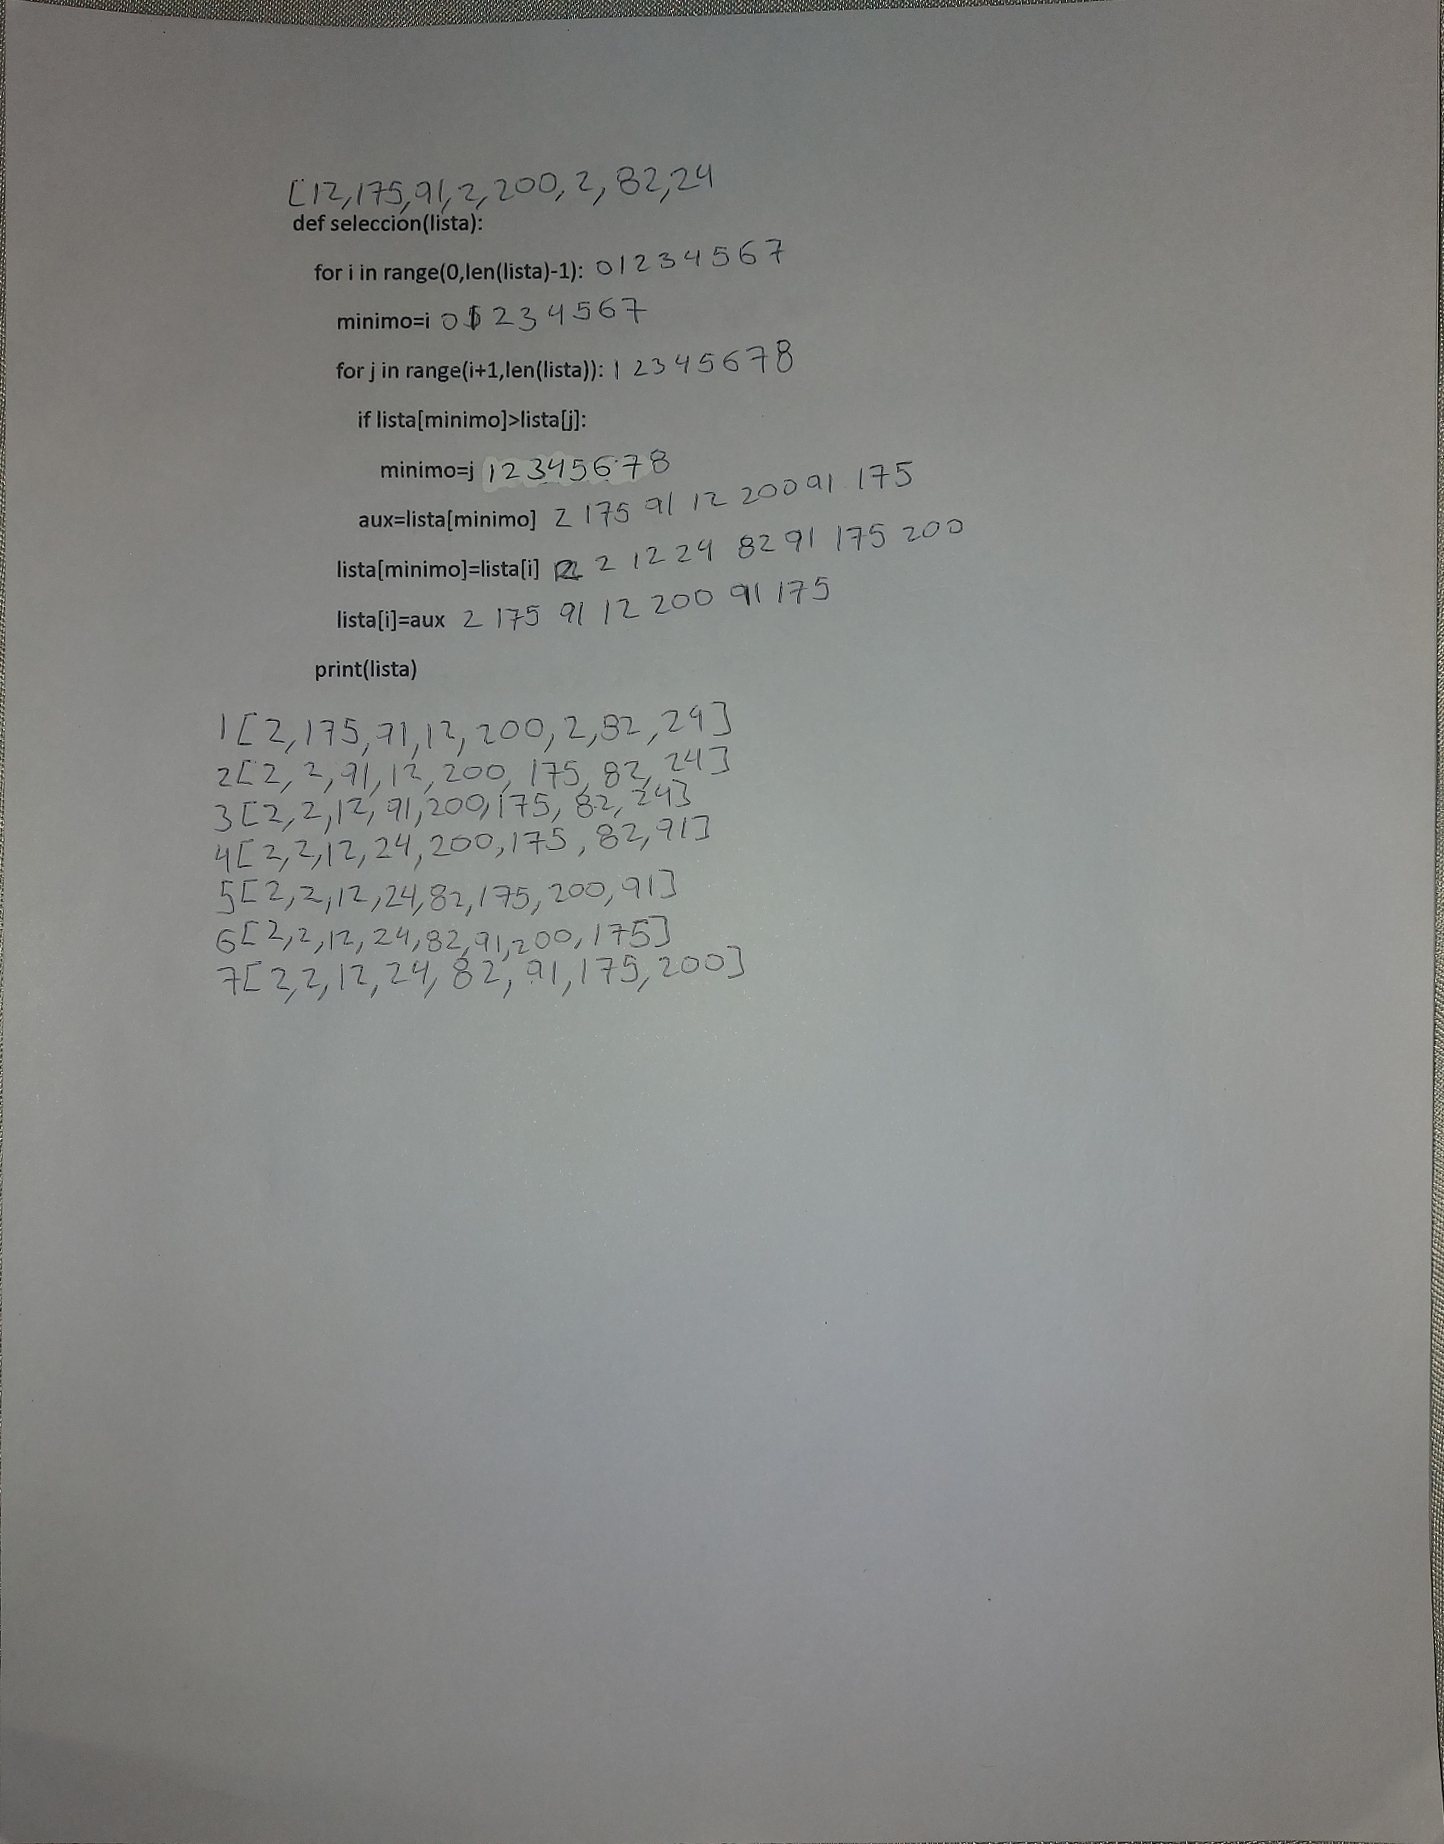 [12,175,91,2,200,2,82,24
def selección(lista):
for i in range(0,len(lista)-1): 0 1 2 3 4 5 6 7
minimo=i 0 1 2 3 4 5 6 7
for j in range(i+1,len(lista)): 1 2 3 4 5 6 7 8
if lista[minimo]>lista[j]:
minimo=j 1 2 3 4 5 6 7 8
aux=lista[minimo] 2 175 91 12 200 91 175
lista[minimo]=lista[i] 2 2 12 24 82 91 175 200
lista[i]=aux 2 175 91 12 200 91 175
print(lista)
1[2,175,91,12,200,2,82,24]
2[2,2,91,12,200,175,82,24]
3[2,2,12,91,200,175,82,24]
4[2,2,12,24,200,175,82,91]
5[2,2,12,24,82,175,200,91]
6[2,2,12,24,82,91,200,175]
7[2,2,12,24,82,91,175,200]